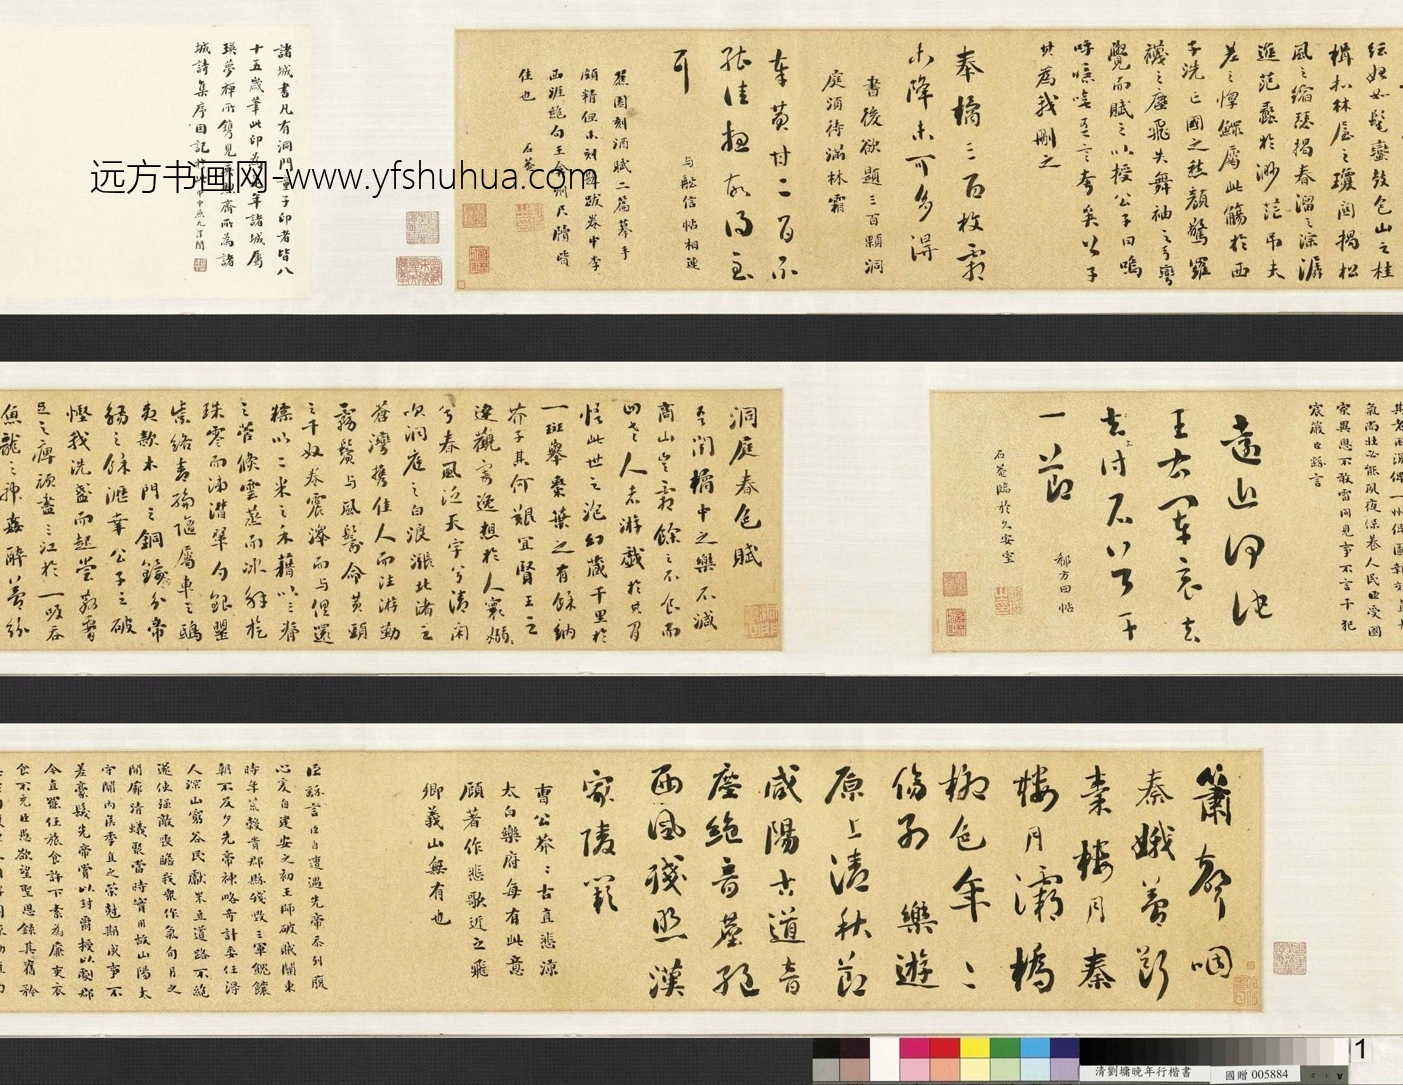 簫聲咽
秦娥夢斷
秦樓月秦
樓月灞橋
柳色年〻
傷別　樂遊
原上清秋節
咸陽古道音
塵絕音塵絕
西風殘照漢
家陵闕
曹公莽〻古直悲涼
太白樂府每有此意
顧著作悲歌近之飛
卿義山無有也
臣繇言臣自遭遇先帝忝列腹
心爰自建安之初王師破賊關東
時年荒穀貴郡縣殘毀三軍餽饟
朝不及夕先帝神略奇計委任得
人深山窮谷民獻米豆道路不絕
遂使強敵喪膽我衆作氣旬月之
間廓清蟻聚當時實用故山陽太
守關內侯季直之策剋期成事不
差豪髮先帝賞以封爵授以劇郡
今直罷任旅食許下素為廉吏衣
食不充臣愚欲望聖恩錄其舊矜
氣尚壯必能夙夜保養人民臣受國
家異恩不敢雷同見事不言干犯
宸嚴臣繇言
遠近清
王右軍
一節
郗方回帖
石菴臨於久安室
洞庭春色賦
吾聞橘中之樂不減
商山豈霜餘之不食而
四老人者游戲於其間
悟此世之泡幻藏千里於
一班舉棗葉之有餘納
芥子其何艱宜賢王之
達觀寄逸想於人寰嫋〻
兮春風泛天宇兮清閑
吹洞庭之白浪漲北渚之
蒼灣攜佳人而往游勒
霧鬢與風鬟命黃頭
之千奴卷震澤而與俱還
糅以二米之禾藉以三脊
之菅倏雲蒸而冰解旋
珠零而涕潸翠勺銀罌
紫絡青綸隨屬車之鴟
夷款木門之銅鐶分帝
觴之餘瀝幸公子之破
慳我洗盞而起嘗散腰
足之痹頑盡三江於一吸吞
魚龍之神姦醉夢紛
紜始如髦蠻鼓包山之桂
楫扣林屋之瓊關揭松
風之縮瑟揭春溜之淙潺
追范蠡於渺茫弔夫
差之惸鰥屬此觴於西
子洗亡國之愁顏驚羅
襪之塵飛失舞袖之弓彎
覺而賦之以授公子曰嗚
呼噫嘻吾言夸矣公子
其為我刪之
奉橘三百枚霜
未降未可多得
書後欲題三百顆洞
庭須待滿林霜
奉黃甘二百不
能佳想故得至
耶
與船信帖相連
蕉園刻酒賦二篇摹手
頗精但未刻
佳也
石菴
諸城書凡有洞門童子印者皆八
十五歲筆此印
瑛夢禪所鐫見
城詩集序因記
远方书画网-www.yfshuhua.com
清劉墉晚年行楷書
國贈 005884
1